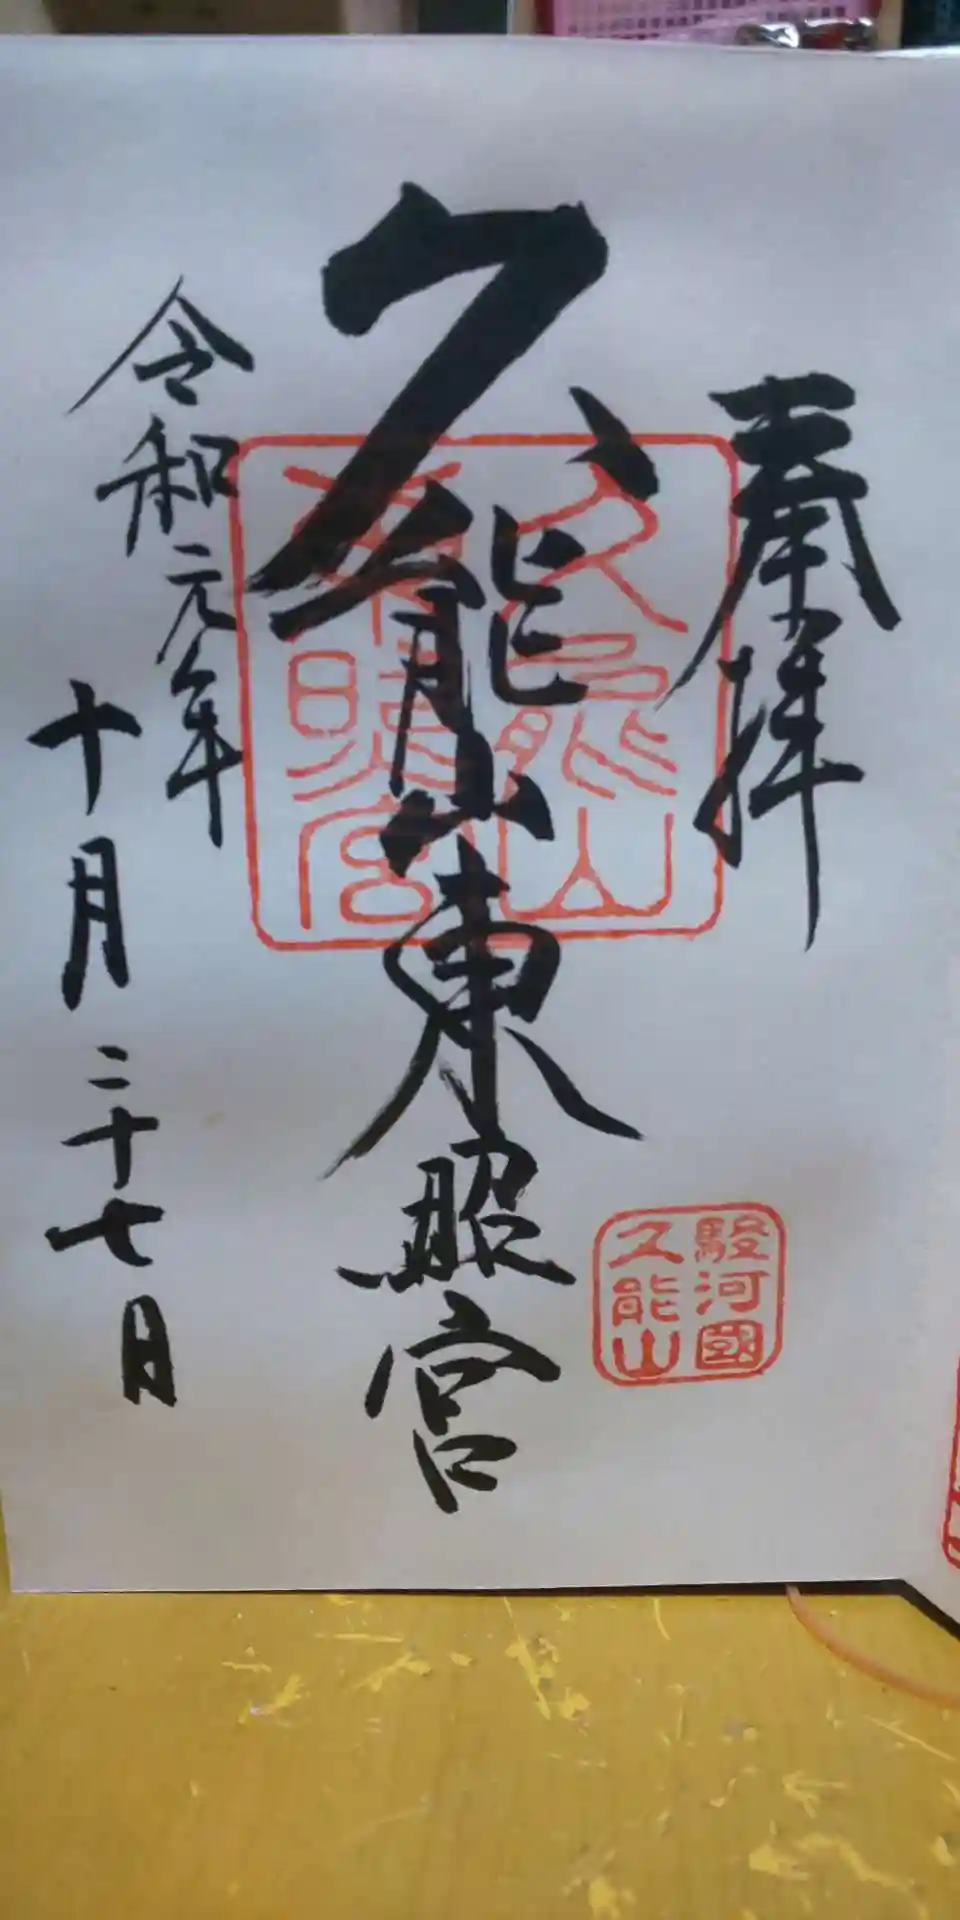 奉拝
久能山東照宮
久能山
東照宮
駿河國
久能山
令和元年
十月二十七日